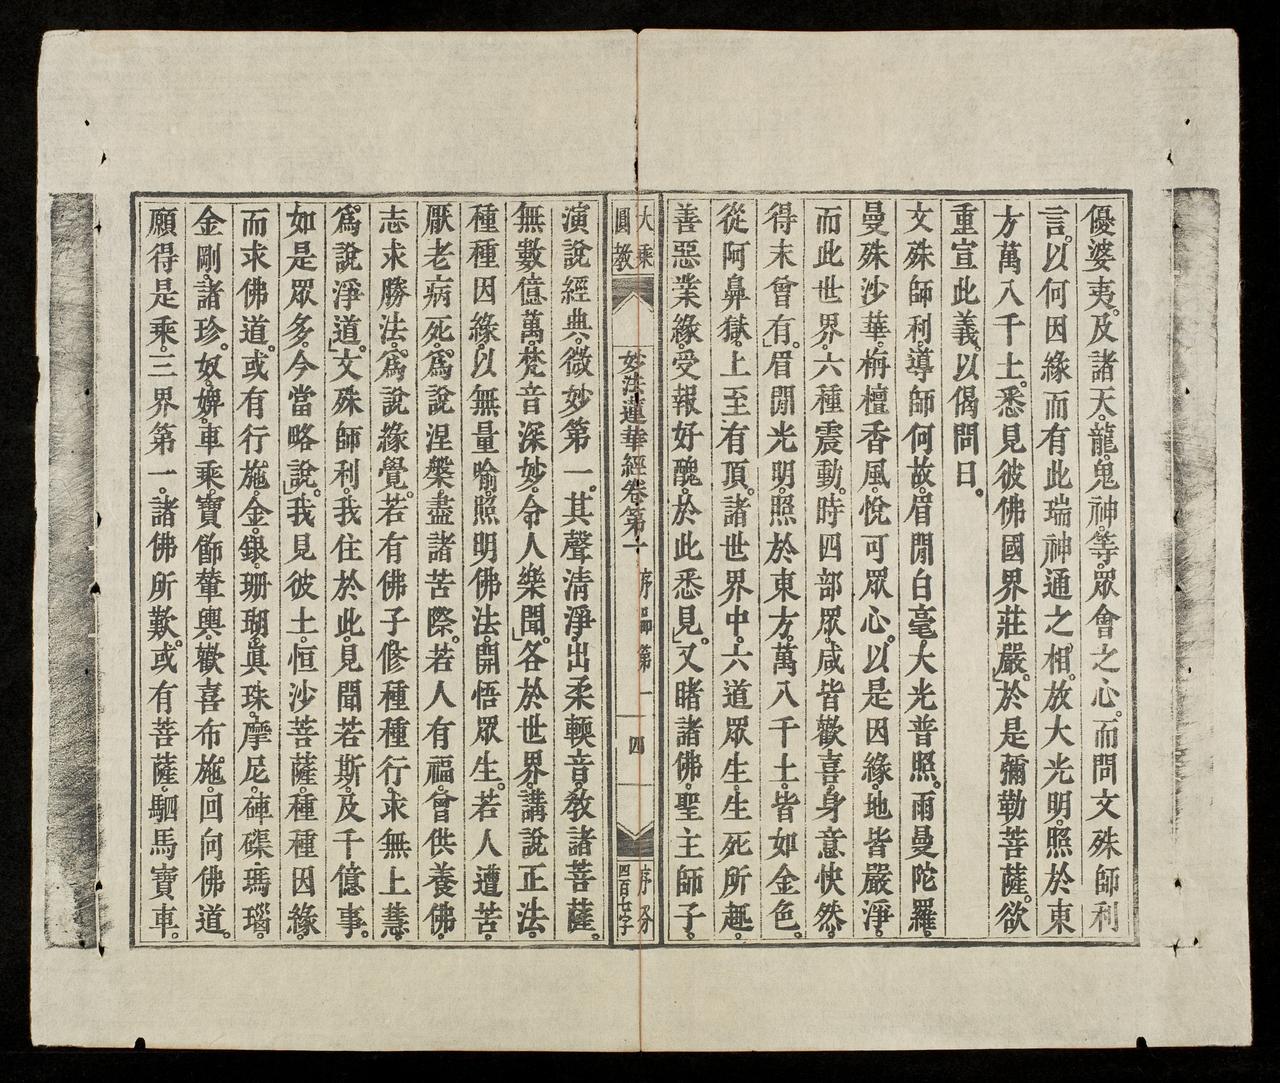 優婆夷。及諸天。龍。鬼神。等。眾會之心。而問文殊師利
言。以何因緣而有此瑞神通之。相。放大光明。照於東
方萬八千土。悉見彼佛國界莊嚴。」於是彌勒菩薩。欲
重宣此義。以偈問曰。
文殊師利。導師何故。眉間白毫。大光普照。雨曼陀羅。
曼殊沙華。栴檀香風。悅可眾心。以是因緣。地皆嚴淨。
而此世界。六種震動。時四部眾。咸皆歡喜。身意快然。
得未曾有。」眉間光明。照於東方。萬八千土。皆如金色。
從阿鼻獄。上至有頂。諸世界中。六道眾生。生死所趣。
善惡業緣。受報好醜。於此悉見。」又睹諸佛。聖主師子。
大乘
圓教
妙法蓮華經卷第一 序品第一
四
序分
四百七字
演說經典。微妙第一。其聲清淨。出柔輭音。教諸菩薩。
無數億萬。梵音深妙。令人樂聞。」各於世界。講說正法。
種種因緣。以無量喻。照明佛法。開悟眾生。若人遭苦。
厭老病死。為說涅槃。盡諸苦際。若人有福。曾供養佛。
志求勝法。為說緣覺。若有佛子。修種種行。求無上慧。
為說淨道。」文殊師利。我住於此。見聞若斯。及千億事。
如是眾多。今當略說。」我見彼土。恒沙菩薩。種種因緣。
而求佛道。或有行施。金。銀。珊瑚。真珠。摩尼。硨磲。瑪瑙。
金剛。諸珍。奴。婢。車乘。寶飾輦輿。歡喜布施。回向佛道。
願得是乘。三界第一。諸佛所歎。或有菩薩。駟馬寶車。